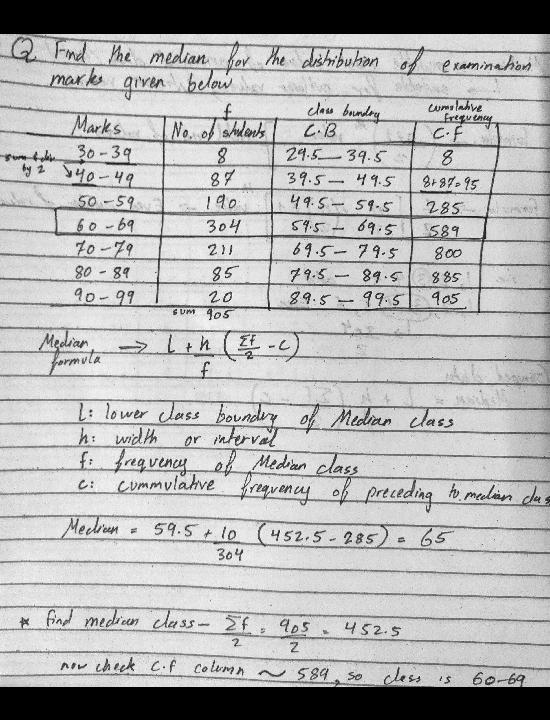 Q Find the median for the distribution of examination
marks given below
Marks f No. of students class boundry C.B cumulative frequency C.f
sum & div by 2
30-39 8 29.5 — 39.5 8
40-49 87 39.5 — 49.5 8+87=95
50-59 190 49.5 — 59.5 285
60-69 304 59.5 — 69.5 589
70-79 211 69.5 - 79.5 800
80-89 85 79.5 — 89.5 885
90-99 20 89.5 — 99.5 905
sum 905
Median formula → l + h/f (Σf/2 - c)
l: lower class boundry of Median class
h: width or interval
f: frequency of Median class
c: cummulative frequency of preceding to median clas
Median = 59.5 + 10/304 (452.5 - 285) = 65
* find median class - Σf/2 = 905/2 = 452.5
now check C.f column ~ 589, so class is 60-69